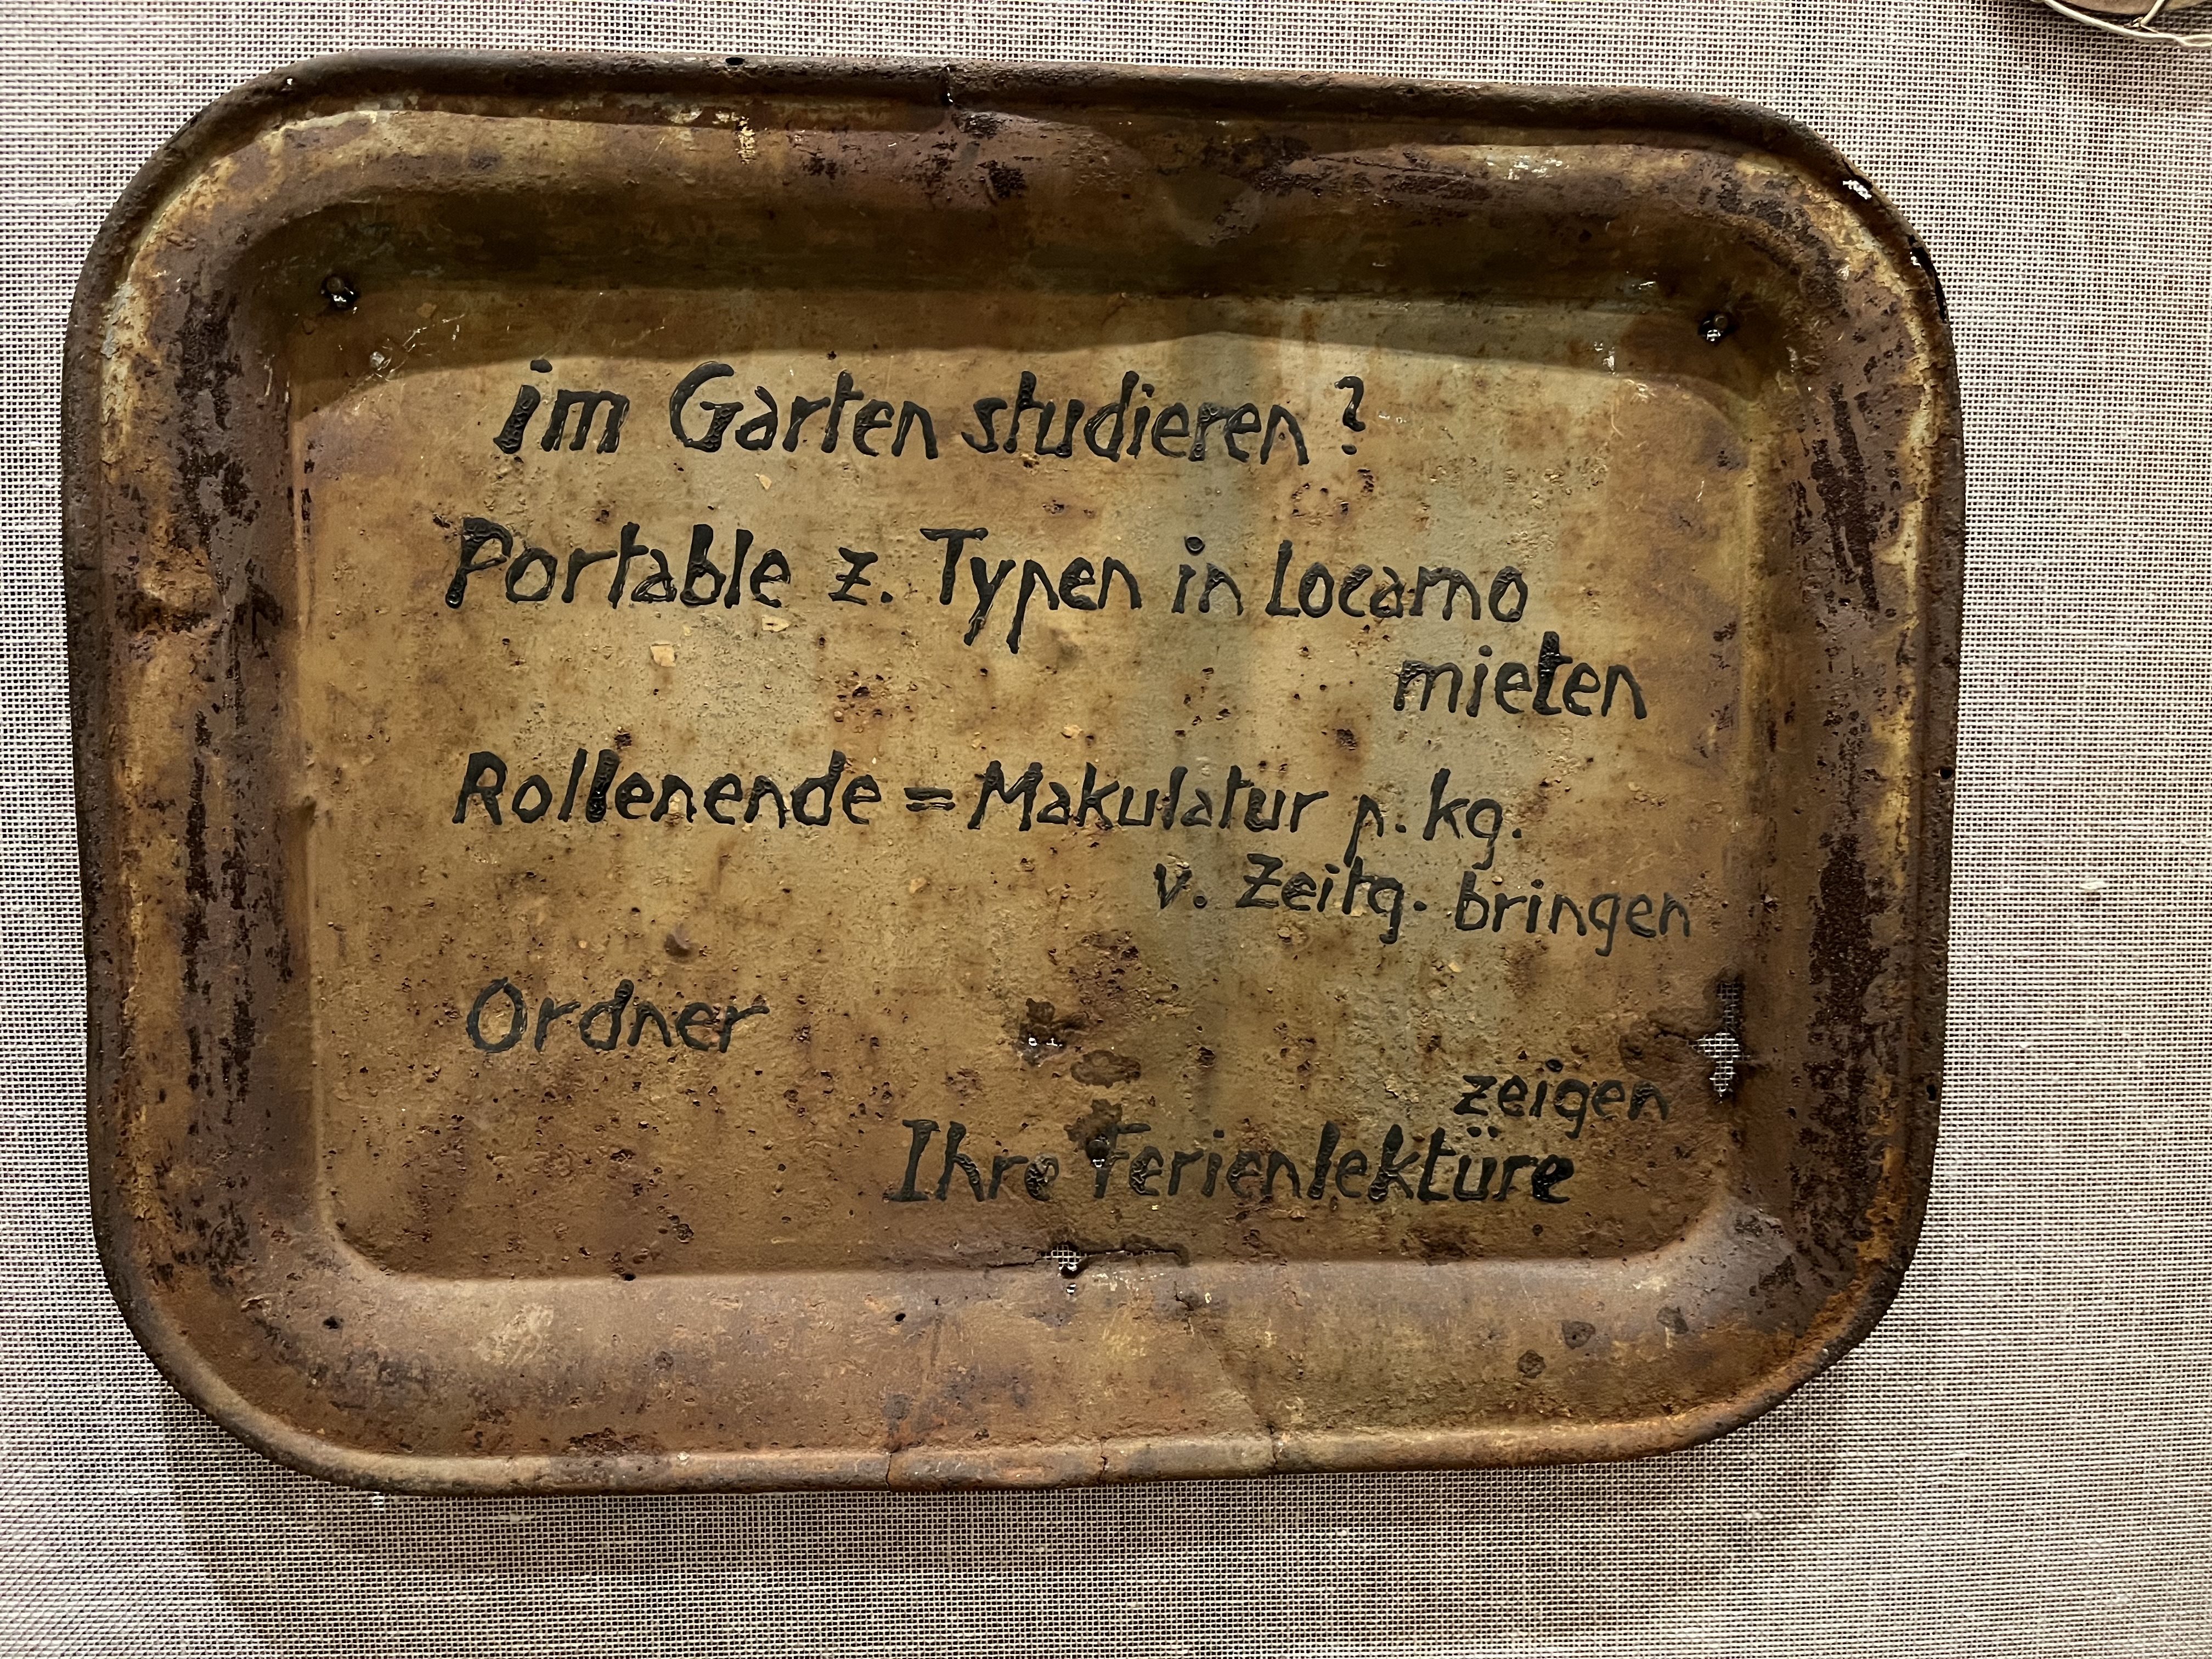 im Garten studieren?
Portable z. Typen in Locarno
mieten
Rollenende = Makulatur p. kg.
v. Zeitg. bringen
Ordner
zeigen
Ihre Ferienlektüre